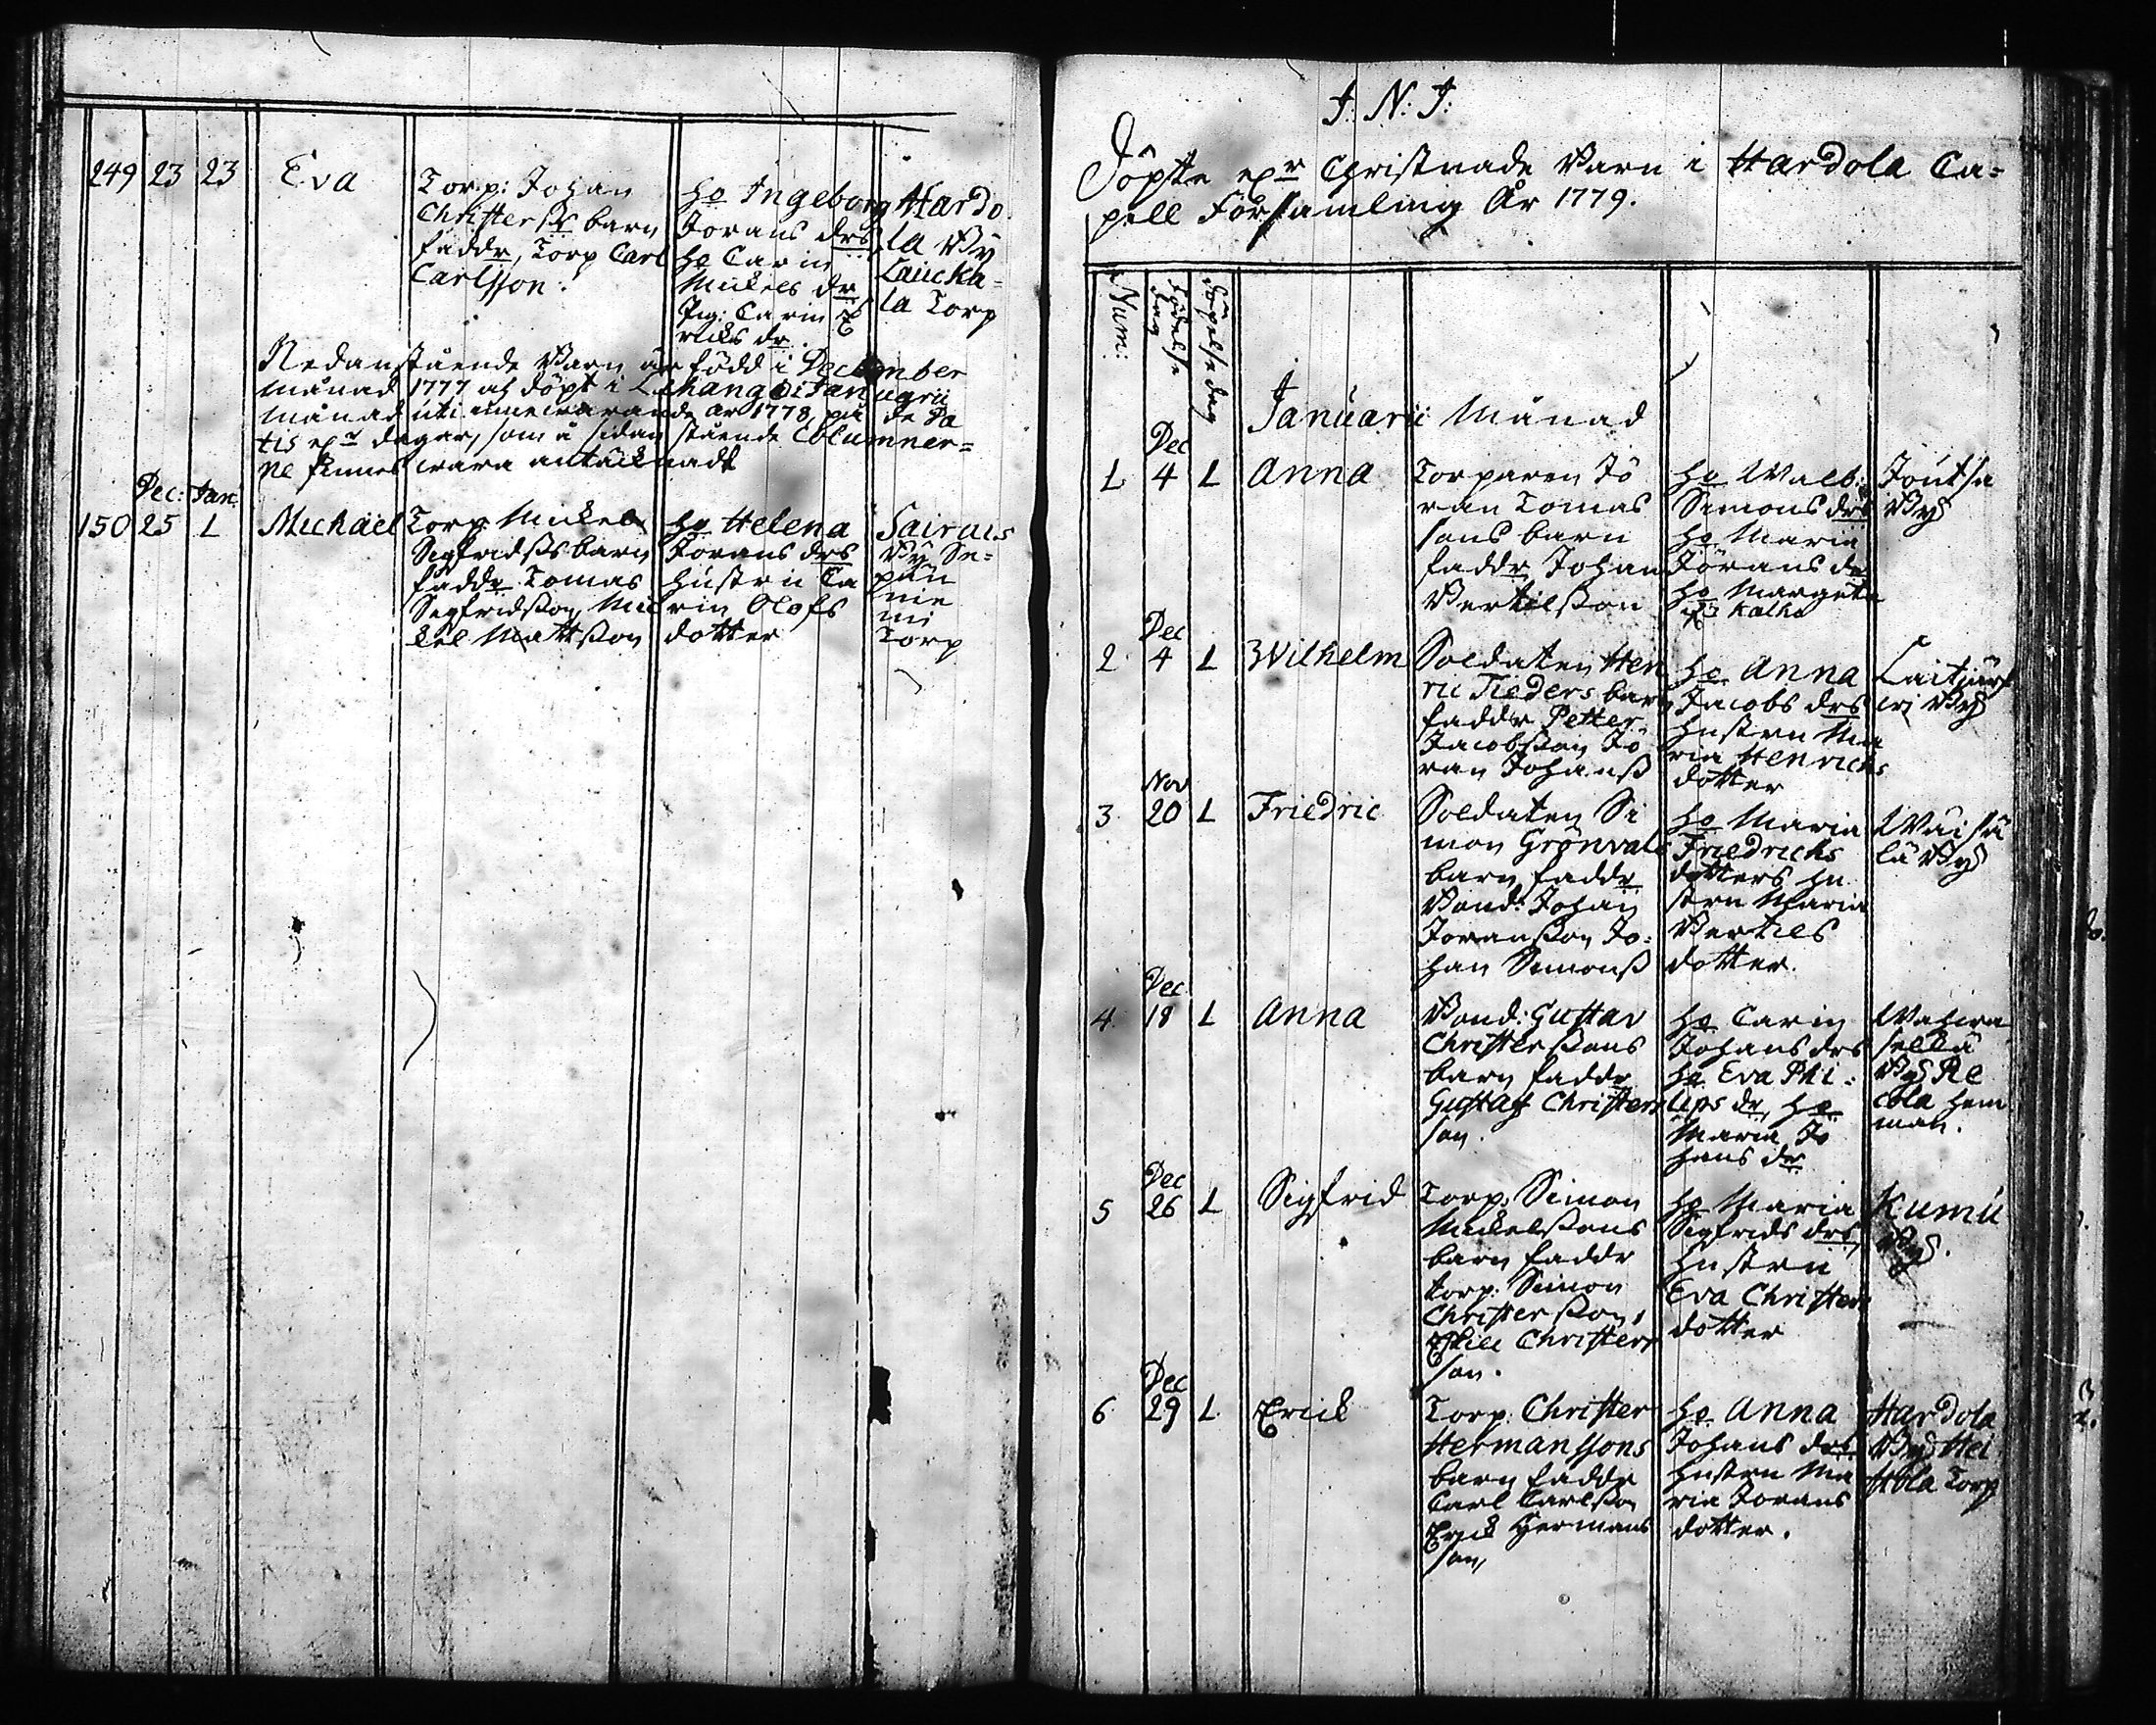 249 23 23 Eva
Torp: Johan
Christerss barn
faddr, Torp Carl
Carlsson.
ho Ingeborg
Jorans drs
ho Carin
Mickels dr
Pig: Carin E
ricks dr.
Hardo
la By
Laucka=
la Torp
Nedanstående Barn är född i December
månad 1777 och döpt i Januarii
månad uti innewarande År 1778, på de Da
tis dagar, som å sidan stående Columner=
ne finnes wara antäcknadt
Dec: Jan:
150 25 1 Michael
Torp: Mickel
Sigfridss barn
faddr Tomas
Sigfridsson, Mic
kel Mattsson
ho Helena
Jorans drs
hustru Ca
rin Olofs
dotter
Sairais
By Se=
pän
nie
mi
Torp
J. N. J.
Döpte Christnade Barn i Hardola Ca=
pell Församling År 1779.
Num:
Födelse
dag
Döpelse dag
Januarii Månad
Dec
1 4 1 Anna
Torparen Jö
ran Tomas
sons barn
faddr Johan
Bertelsson
ho Walb:
Simons drs
ho Maria
Jörans dr
ho Margeta
Kalho
Joutsa
By
Dec
2 4 1 Wilhelm
Soldaten Hen
ric Tieders barn
faddr Petter
Jacobsson Jö
ran Johanss
ho Anna
Jacobs drs
hustru Ma
ria Henrichs
dotter
Laitjärf
wi By
Nov
3 20 1 Friedric
Soldaten Si
mon Grönvals
barn faddr
Bond: Johan
Joransson Jo=
han Simonss
ho Maria
Friedrichs
dotters hu
stru Maria
Bertils
dotter.
Wuisä
lä By
Dec
4 18 1 Anna
Bond: Gustav
Christerssons
barn faddr
Gustaf Christers
son.
ho Carin
Johans drs
ho Eva Phi=
lips dr, ho
Maria Jo
hans dr
Wahwa
sellä
By Re
cola hem
man.
Dec
5 26 1 Sigfrid
Torp: Simon
Mickelssons
barn faddr
torp: Simon
Christersson,
Eskill Christers
son.
ho Maria
Sigfrids drs,
hustru
Eva Christers
dotter
Kumu
By.
Dec
6 29 1 Erick
Torp: Christer
Hermanssons
barn faddr
Carl Carlsson
Erick Hermans
son,
ho Anna
Johans drs
hustru Ma
ria Jorans
dotter.
Hardola
By Hei
ttola Torp